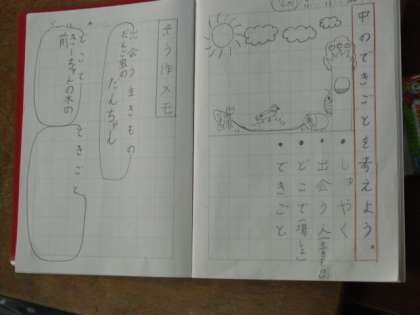 中のできごとを考えよう。
・しゅやく
・出会う人(生きもの)
・どこで(場しょ)
・できごと
そう作メモ
出会う生きもの
だんご虫の
だんちゃん
どこで
きーちゃんの木の
前
できごと